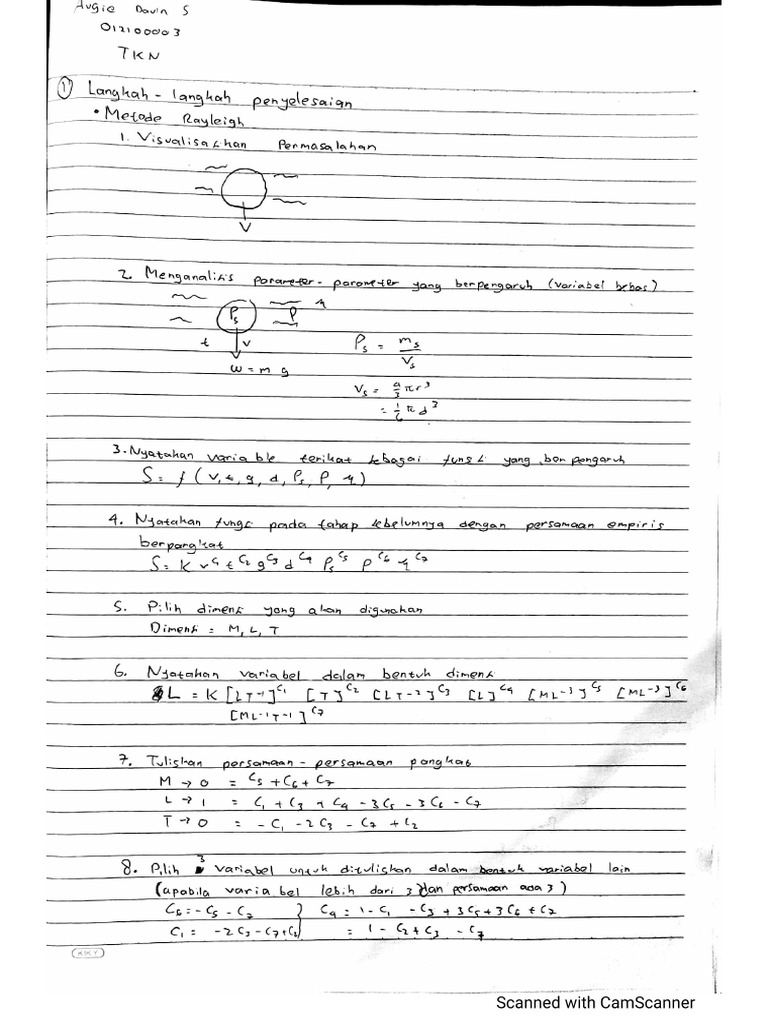 Augie Davin S
012100003
TKN
① Langkah - langkah penyelesaian
• Metode Rayleigh
1. Visualisasikan Permasalahan
V
2. Menganalisis parameter - parameter yang berpengaruh (variabel bebas)
ρs ρ η
t v
w = m g
ρs = ms / Vs
Vs = 4/3 π r³
= 1/6 π d³
3. Nyatakan variable terikat sebagai fungsi yang berpengaruh
S = f ( v, t, g, d, ρs, ρ, η )
4. Nyatakan fungsi pada tahap sebelumnya dengan persamaan empiris
berpangkat
S = K v^C1 t^C2 g^C3 d^C4 ρs^C5 ρ^C6 η^C7
5. Pilih dimensi yang akan digunakan
Dimensi = M, L, T
6. Nyatakan variabel dalam bentuk dimensi
L = K [LT-1]^C1 [T]^C2 [LT-2]^C3 [L]^C4 [ML-3]^C5 [ML-3]^C6
[ML-1T-1]^C7
7. Tuliskan persamaan - persamaan pangkat
M → 0 = C5 + C6 + C7
L → 1 = C1 + C3 + C4 - 3C5 - 3C6 - C7
T → 0 = - C1 - 2C3 - C7 + C2
8. Pilih 3 variabel untuk dituliskan dalam bentuk variabel lain
(apabila variabel lebih dari 3 dan persamaan ada 3)
C6 = - C5 - C7 } C4 = 1 - C1 - C3 + 3C5 + 3C6 + C7
C1 = -2C3 - C7 + C2 } = 1 - C2 + C3 - C7
KKY
Scanned with CamScanner